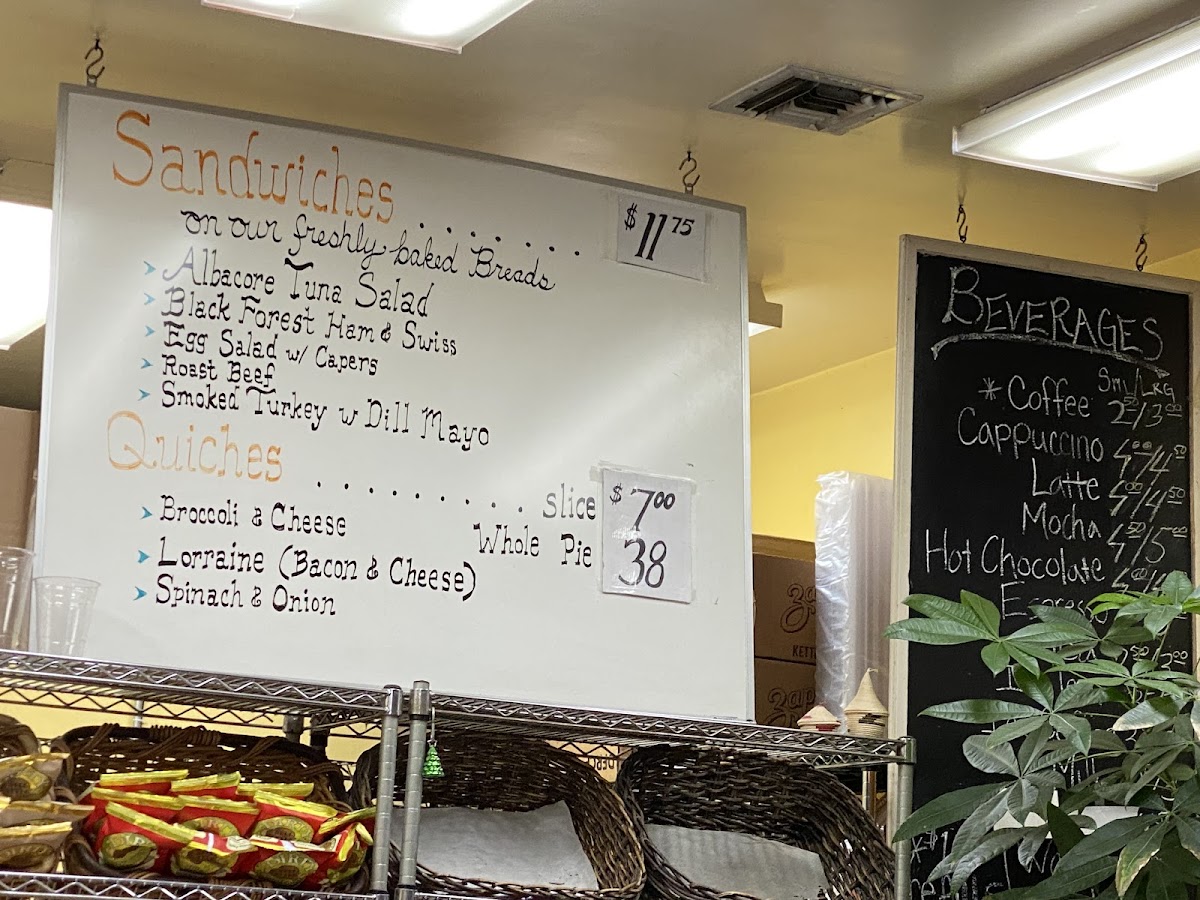 Sandwiches ........ $11.75
on our freshly baked Breads
Albacore Tuna Salad
Black Forest Ham & Swiss
Egg Salad w/ Capers
Roast Beef
Smoked Turkey w Dill Mayo
Quiches ......... slice $7.00
Whole Pie 38
Broccoli & Cheese
Lorraine (Bacon & Cheese)
Spinach & Onion
BEVERAGES
Sml/LRG
*Coffee 2.50/3.00
Cappuccino 4.00/4.50
Latte 4.00/4.50
Mocha 4.50/5.00
Hot Chocolate